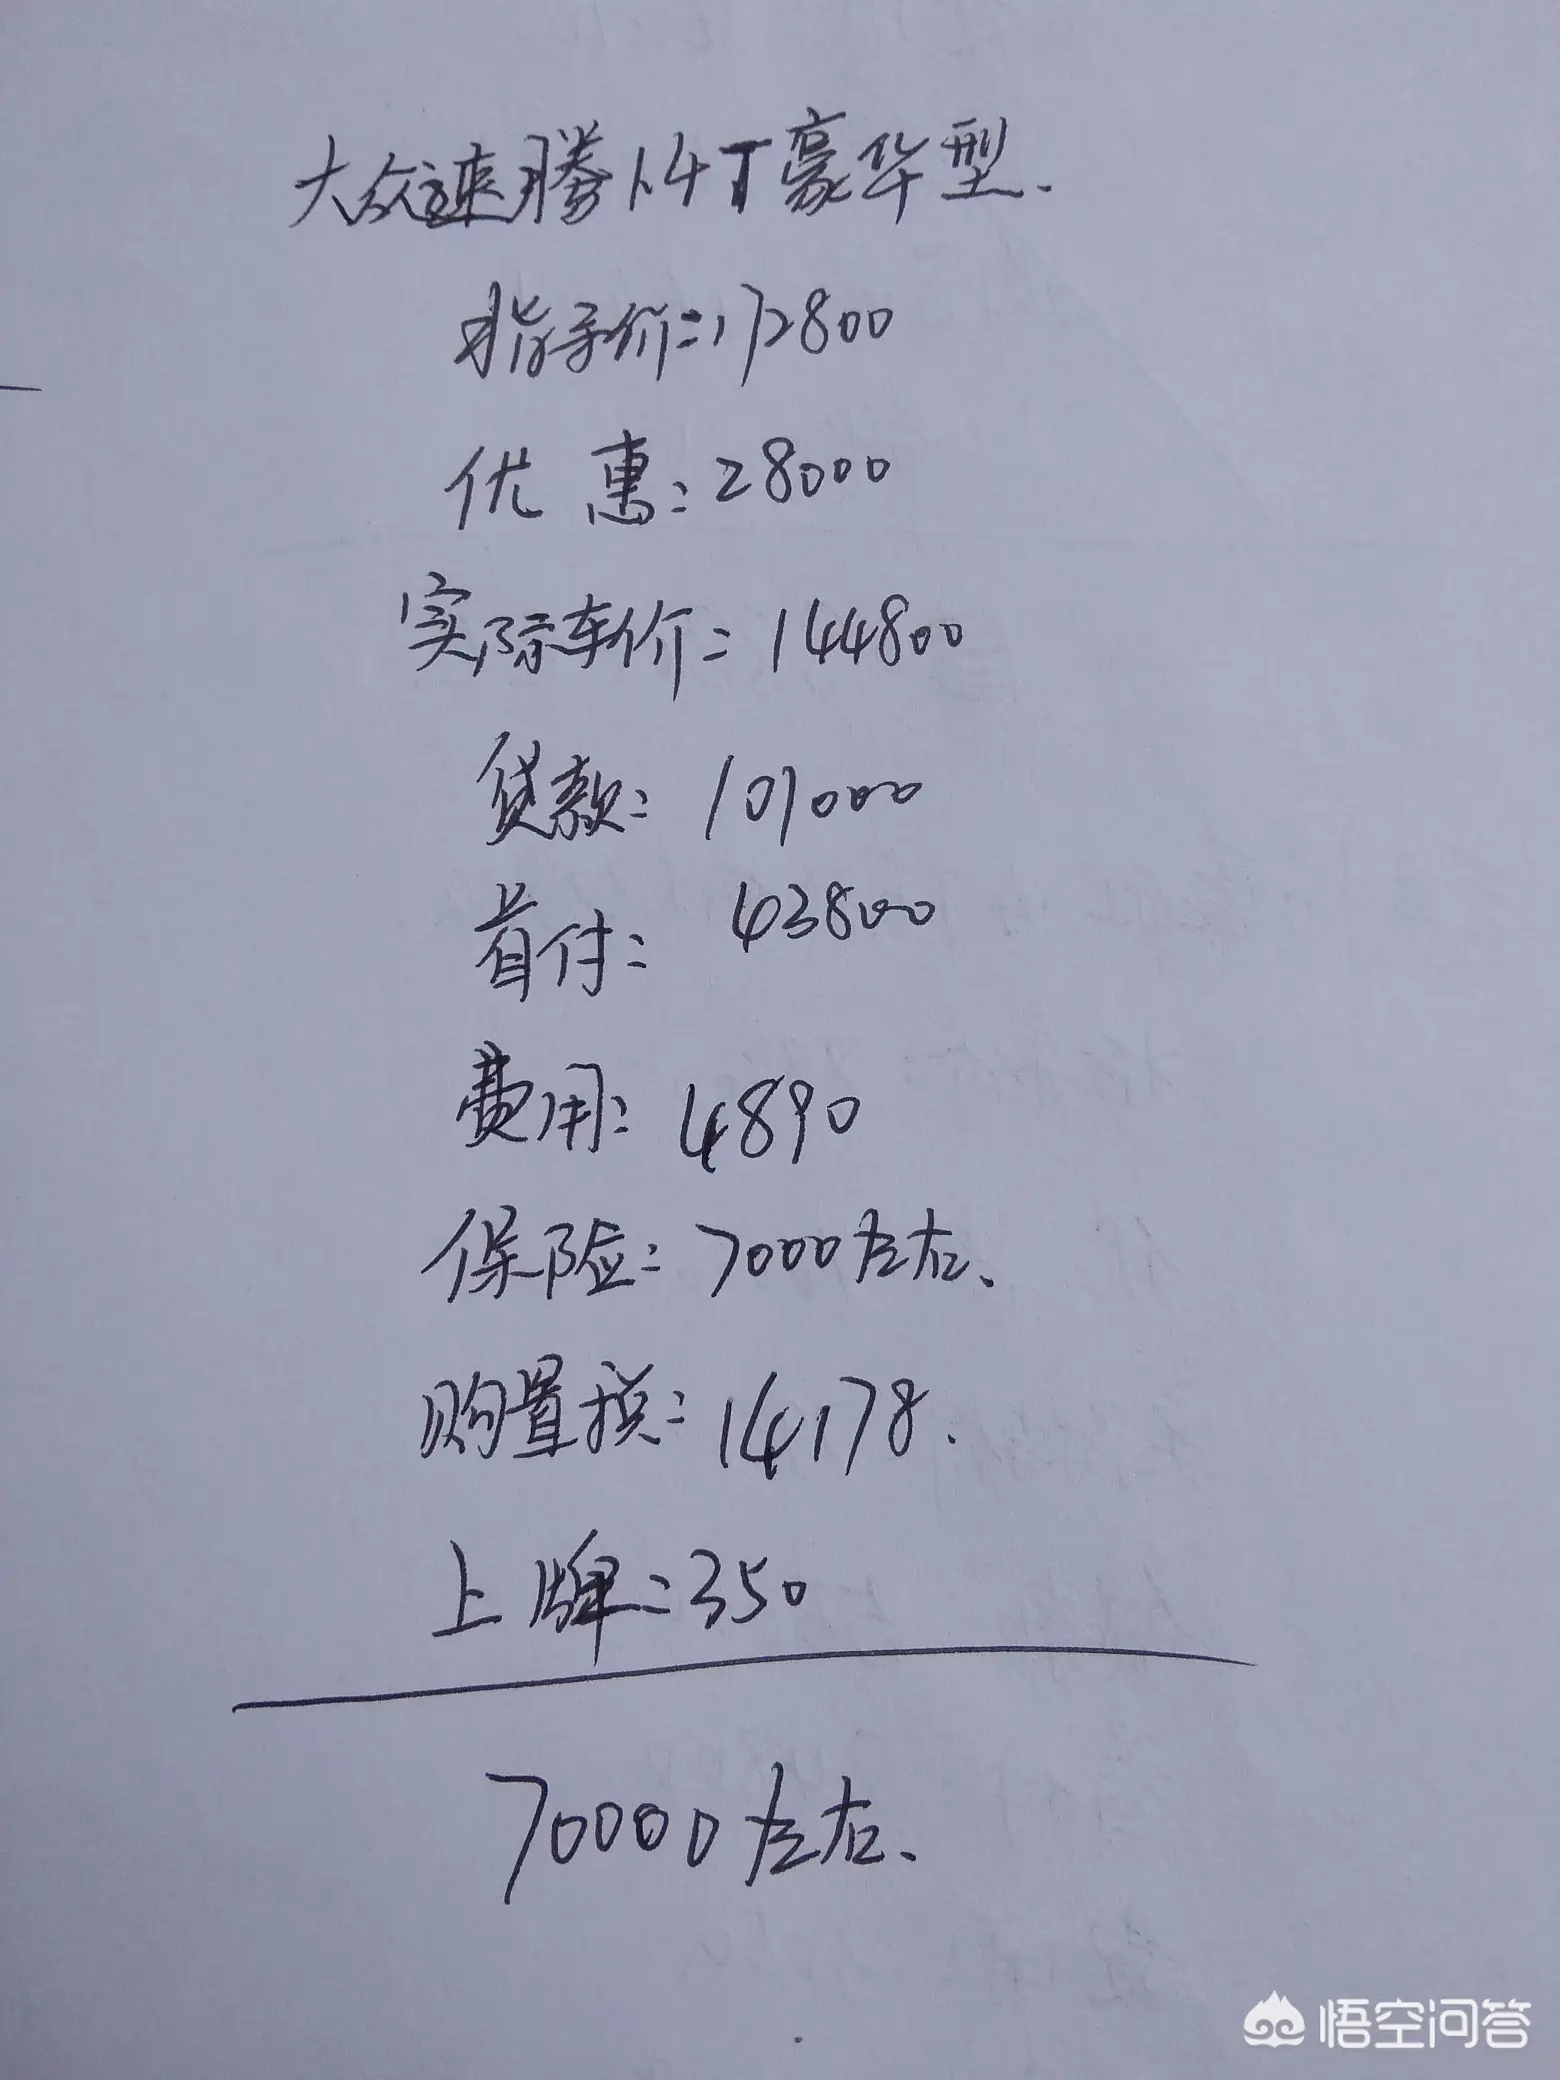 大众速腾1.4T豪华型.
指导价:172800
优惠:28000
实际车价:144800
贷款:101000
首付:43800
费用:4890
保险:7000左右、
购置税:14178.
上牌:350
70000左右、
悟空问答